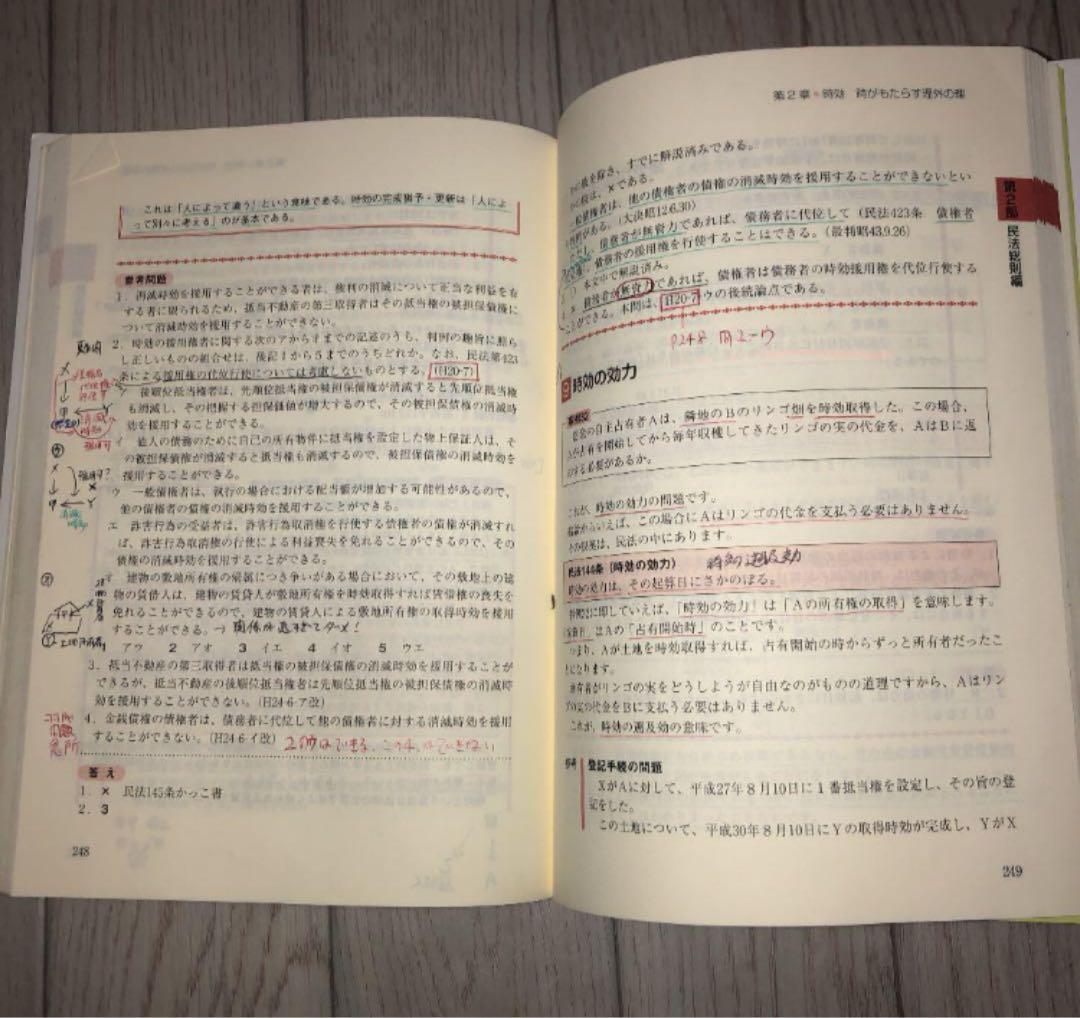 これは「人によって違う」という意味である。時効の完成猶予・更新は「人によ
って別々に考える」のが基本である。
参考問題
1．再滅時効を援用することができる者は、権利の消滅について正当な利益を有
する者に限られるため、抵当不動産の第三取得者はその抵当権の被担保債権に
ついて消滅時効を援用することができない。
2．時効の援用権者に関する次のアからオまでの記述のうち、判例の趣旨に照ら
し正しいものの組合せは、後記1から5までのうちどれか。なお、民法第423
条による援用権の代位行使については考慮しないものとする。(H20-7)
後順位抵当権者は、先順位抵当権の被担保債権が消滅すると先順位抵当権
も消滅し、その把握する担保価値が増大するので、その被担保債権の消滅時
効を援用することができる。
イ　他人の債務のために自己の所有物件に抵当権を設定した物上保証人は、そ
の被担保債権が消滅すると抵当権も消滅するので、被担保債権の消滅時効を
援用することができる。
ウ　一般債権者は、執行の場合における配当額が増加する可能性があるので、
他の債権者の債権の消滅時効を援用することができる。
エ　詐害行為の受益者は、詐害行為取消権を行使する債権者の債権が消滅すれ
ば、詐害行為取消権の行使による利益喪失を免れることができるので、その
債権の消滅時効を援用することができる。
オ　建物の敷地所有権の帰属につき争いがある場合において、その敷地上の建
物の賃借人は、建物の賃貸人が敷地所有権を時効取得すれば賃借権の喪失を
免れることができるので、建物の賃貸人による敷地所有権の取得時効を援用
することができる。→関係が遠すぎてダメ！
アウ　2 アオ　3 イエ　4 イオ　5 ウエ
3．抵当不動産の第三取得者は抵当権の被担保債権の消滅時効を援用することが
できるが、抵当不動産の後順位抵当権者は先順位抵当権の被担保債権の消滅時
効を援用することができない。(H24-6-ア改)
4．金銭債権の債権者は、債務者に代位して他の債権者に対する消滅時効を援用
することができない。(H24-6-イ改)
答え
1．×　民法145条かっこ書
2．3
248
第2章●時効　時がもたらす理外の理
の肢を除き、すでに解説済みである。
の肢は、×である。
一般債権者は、他の債権者の債権の消滅時効を援用することができないとい
判例がある。(大決昭12.6.30)
ただし、債務者が無資力であれば、債務者に代位して（民法423条　債権者
、債務者の援用権を行使することはできる。(最判昭43.9.26)
本文中で解説済み。
×　債務者が無資力であれば、債権者は債務者の時効援用権を代位行使する
ことができる。本問は、H20-7-ウの後続論点である。
P248 問2-ウ
第2部　民法総則編
9 時効の効力
悪意の自主占有者Aは、隣地のBのリンゴ畑を時効取得した。この場合、
Aが占有を開始してから毎年収穫してきたリンゴの実の代金を、AはBに返
還する必要があるか。
これが、時効の効力の問題です。
結論からいえば、この場合にAはリンゴの代金を支払う必要はありません。
その根拠は、民法の中にあります。
民法144条（時効の効力）　時効の遡及効
時効の効力は、その起算日にさかのぼる。
に即していえば、「時効の効力」は「Aの所有権の取得」を意味します。
「起算日」はAの「占有開始時」のことです。
つまり、Aが土地を時効取得すれば、占有開始の時からずっと所有者だったこ
とになります。
所有者がリンゴの実をどうしようが自由なのがものの道理ですから、Aはリン
ゴの実の代金をBに支払う必要がありません。
これが、時効の遡及効の意味です。
参考　登記手続の問題
XがAに対して、平成27年8月10日に1番抵当権を設定し、その旨の登
記をした。
この土地について、平成30年8月10日にYの取得時効が完成し、YがX
249